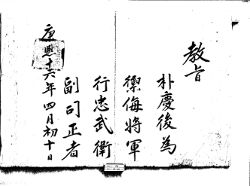 教旨
朴慶後為
禦侮將軍
行忠武衛
副司正者
康熙十六年四月初十日